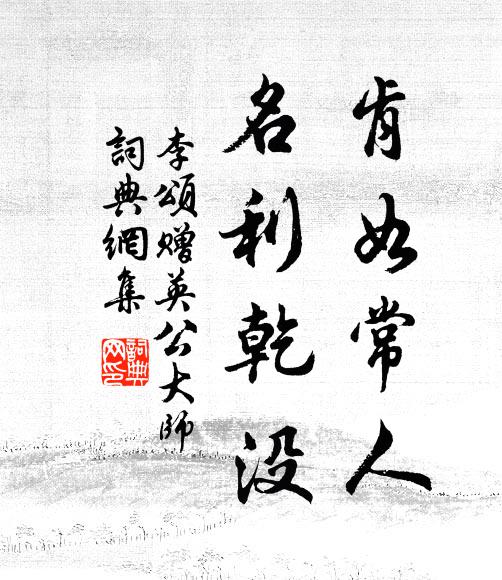 肯如常人
名利乾没
李頌贈英公大師
詞典網集
詞典网印